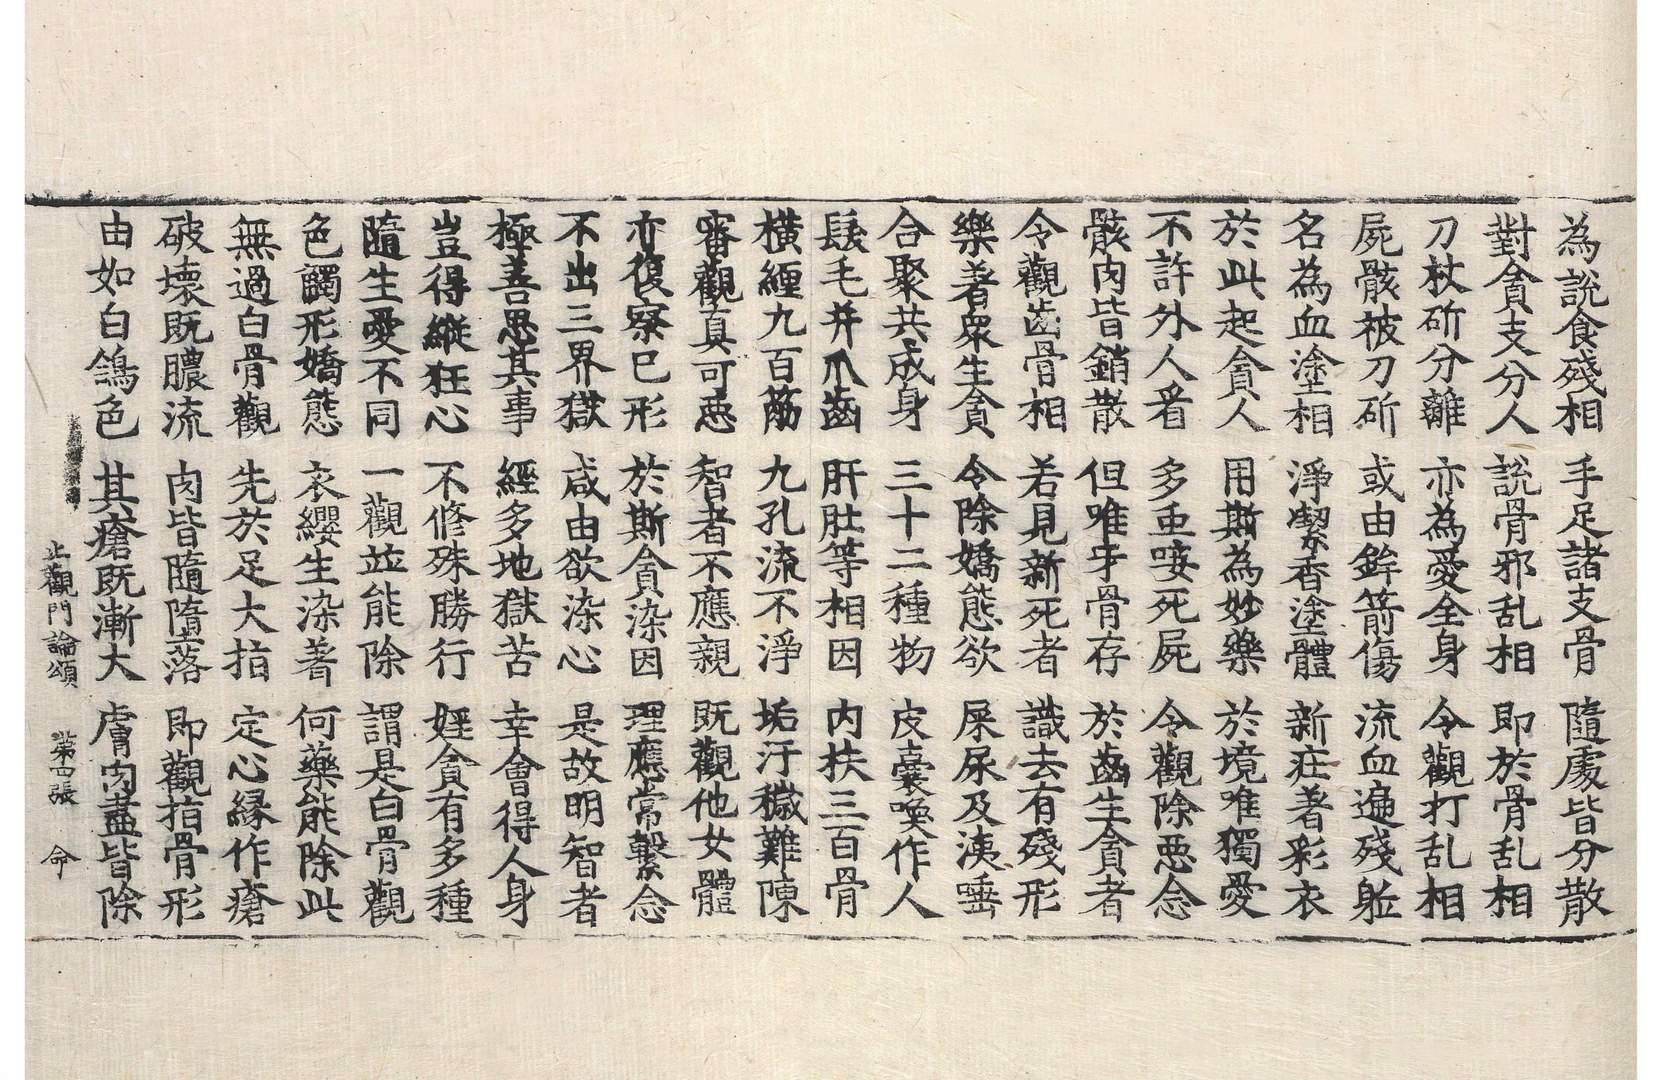 為說食殘相　手足諸支骨　隨處皆分散
對貪支分人　說骨邪乱相　即於骨乱相
刀杖斫分離　亦為愛全身　令觀打乱相
屍骸被刀斫　或由鉾箭傷　流血遍殘軀
名為血塗相　淨潔香塗體　新莊著彩衣
於此起貪人　用斯為妙藥　於境唯獨愛
不許外人看　多重唼死屍　令觀除惡念
骸肉皆銷散　但唯牙骨存　於齒生貪者
令觀齒骨相　若見新死者　識去有殘形
樂著眾生貪　令除嬌態欲　屎尿及洟唾
合聚共成身　三十二種物　皮囊喚作人
髮毛并爪齒　肝肚等相因　內扶三百骨
橫纏九百筋　九孔流不淨　垢汙穢難陳
審觀真可惡　智者不應親　既觀他女體
亦復察己形　於斯貪染因　理應常繫念
不出三界獄　咸由欲染心　是故明智者
極善思其事　經多地獄苦　幸會得人身
豈得縱狂心　不修殊勝行　婬貪有多種
隨生愛不同　一觀並能除　謂是白骨觀
色觸形嬌態　衣纓生染著　何藥能除此
無過白骨觀　先於足大指　定心緣作瘡
破壞既膿流　肉皆隨墮落　即觀指骨形
由如白鴿色　其瘡既漸大　膚肉盡皆除
止觀門論頌　第四張　命